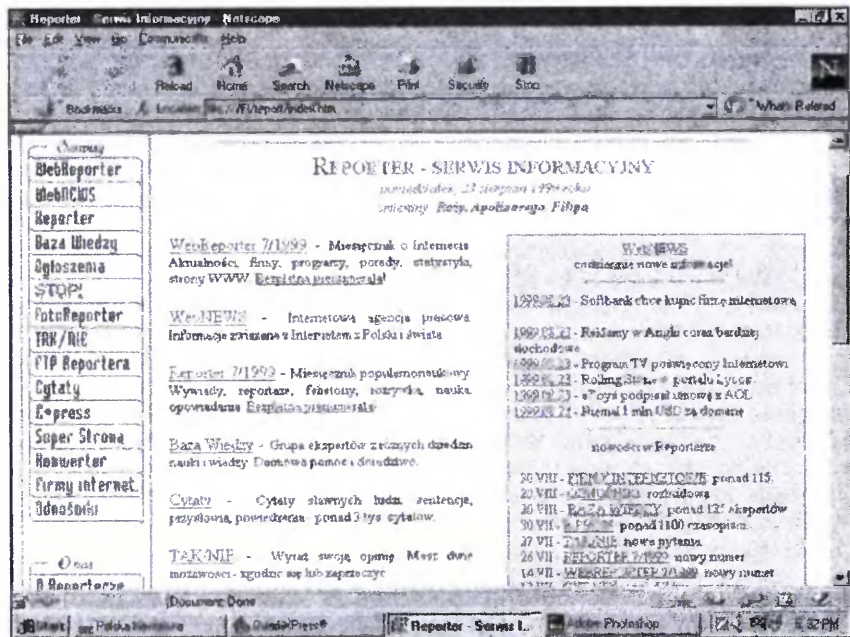 Reporter - Serwis Informacyjny - Netscape
File Edit View Go Communicator Help
Reload Home Search Netscape Print Security Stop
Bookmarks Location /F|/report/index.htm What's Related
WebReporter
WebNEWS
Reporter
Baza Wiedzy
Ogłoszenia
STOP!
FotoReporter
TAK/NIE
FTP Reportera
Cytaty
E-press
Super Strona
Konwerter
Firmy internet.
Odnośniki
O nas
O Reporterze
REPORTER - SERWIS INFORMACYJNY
poniedziałek, 23 sierpnia 1999 roku
imieniny: Róży, Apolinarego, Filipa
WebReporter 7/1999 - Miesięcznik o Internecie
Aktualności, firmy, programy, porady, statystyka,
strony WWW. Bezpłatna prenumerata!
WebNEWS - Internetowa agencja prasowa
Informacje związane z Internetem z Polski i świata
Reporter 7/1999 - Miesięcznik popularnonaukowy
Wywiady, reportaże, felietony, rozrywka, nauka,
opowiadania Bezpłatna prenumerata!
Baza Wiedzy - Grupa ekspertów z różnych dziedzin
nauki i wiedzy. Darmowa pomoc i doradztwo.
Cytaty - Cytaty sławnych ludzi, sentencje,
przysłowia, powiedzenia - ponad 3 tys. cytatów.
TAK/NIE - Wyraź swoją opinię. Masz dwie
możliwości - zgodzić się lub zaprzeczyć
WebNEWS
codziennie nowe informacje!
1999.08.23 - Softbank chce kupić firmę internetową
1999.08.23 - Reklamy w Anglii coraz bardziej
dochodowe
1999.08.23 - Program TV poświęcony Internetowi
1999.08.23 - Rolling Stone portalu Lycos
1999.08.23 - podpisał umowę z AOL
1999.08.23 - Niemal 1 mln USD za domenę
nowości w Reporterze
30 VIII - FIRMY INTERNETOWE ponad 115
20 VIII - rozbudowa
30 VIII - BAZA WIEDZY ponad 125 ekspertów
30 VII - E-PRESS ponad 1100 czasopism
27 VII - TAK/NIE nowe pytania
26 VII - REPORTER 7/1999 nowy numer
14 VII - WEBREPORTER 7/1999 nowy numer
Document: Done
Start Polska Reporter - Serwis I... Adobe Photoshop 6:32 PM